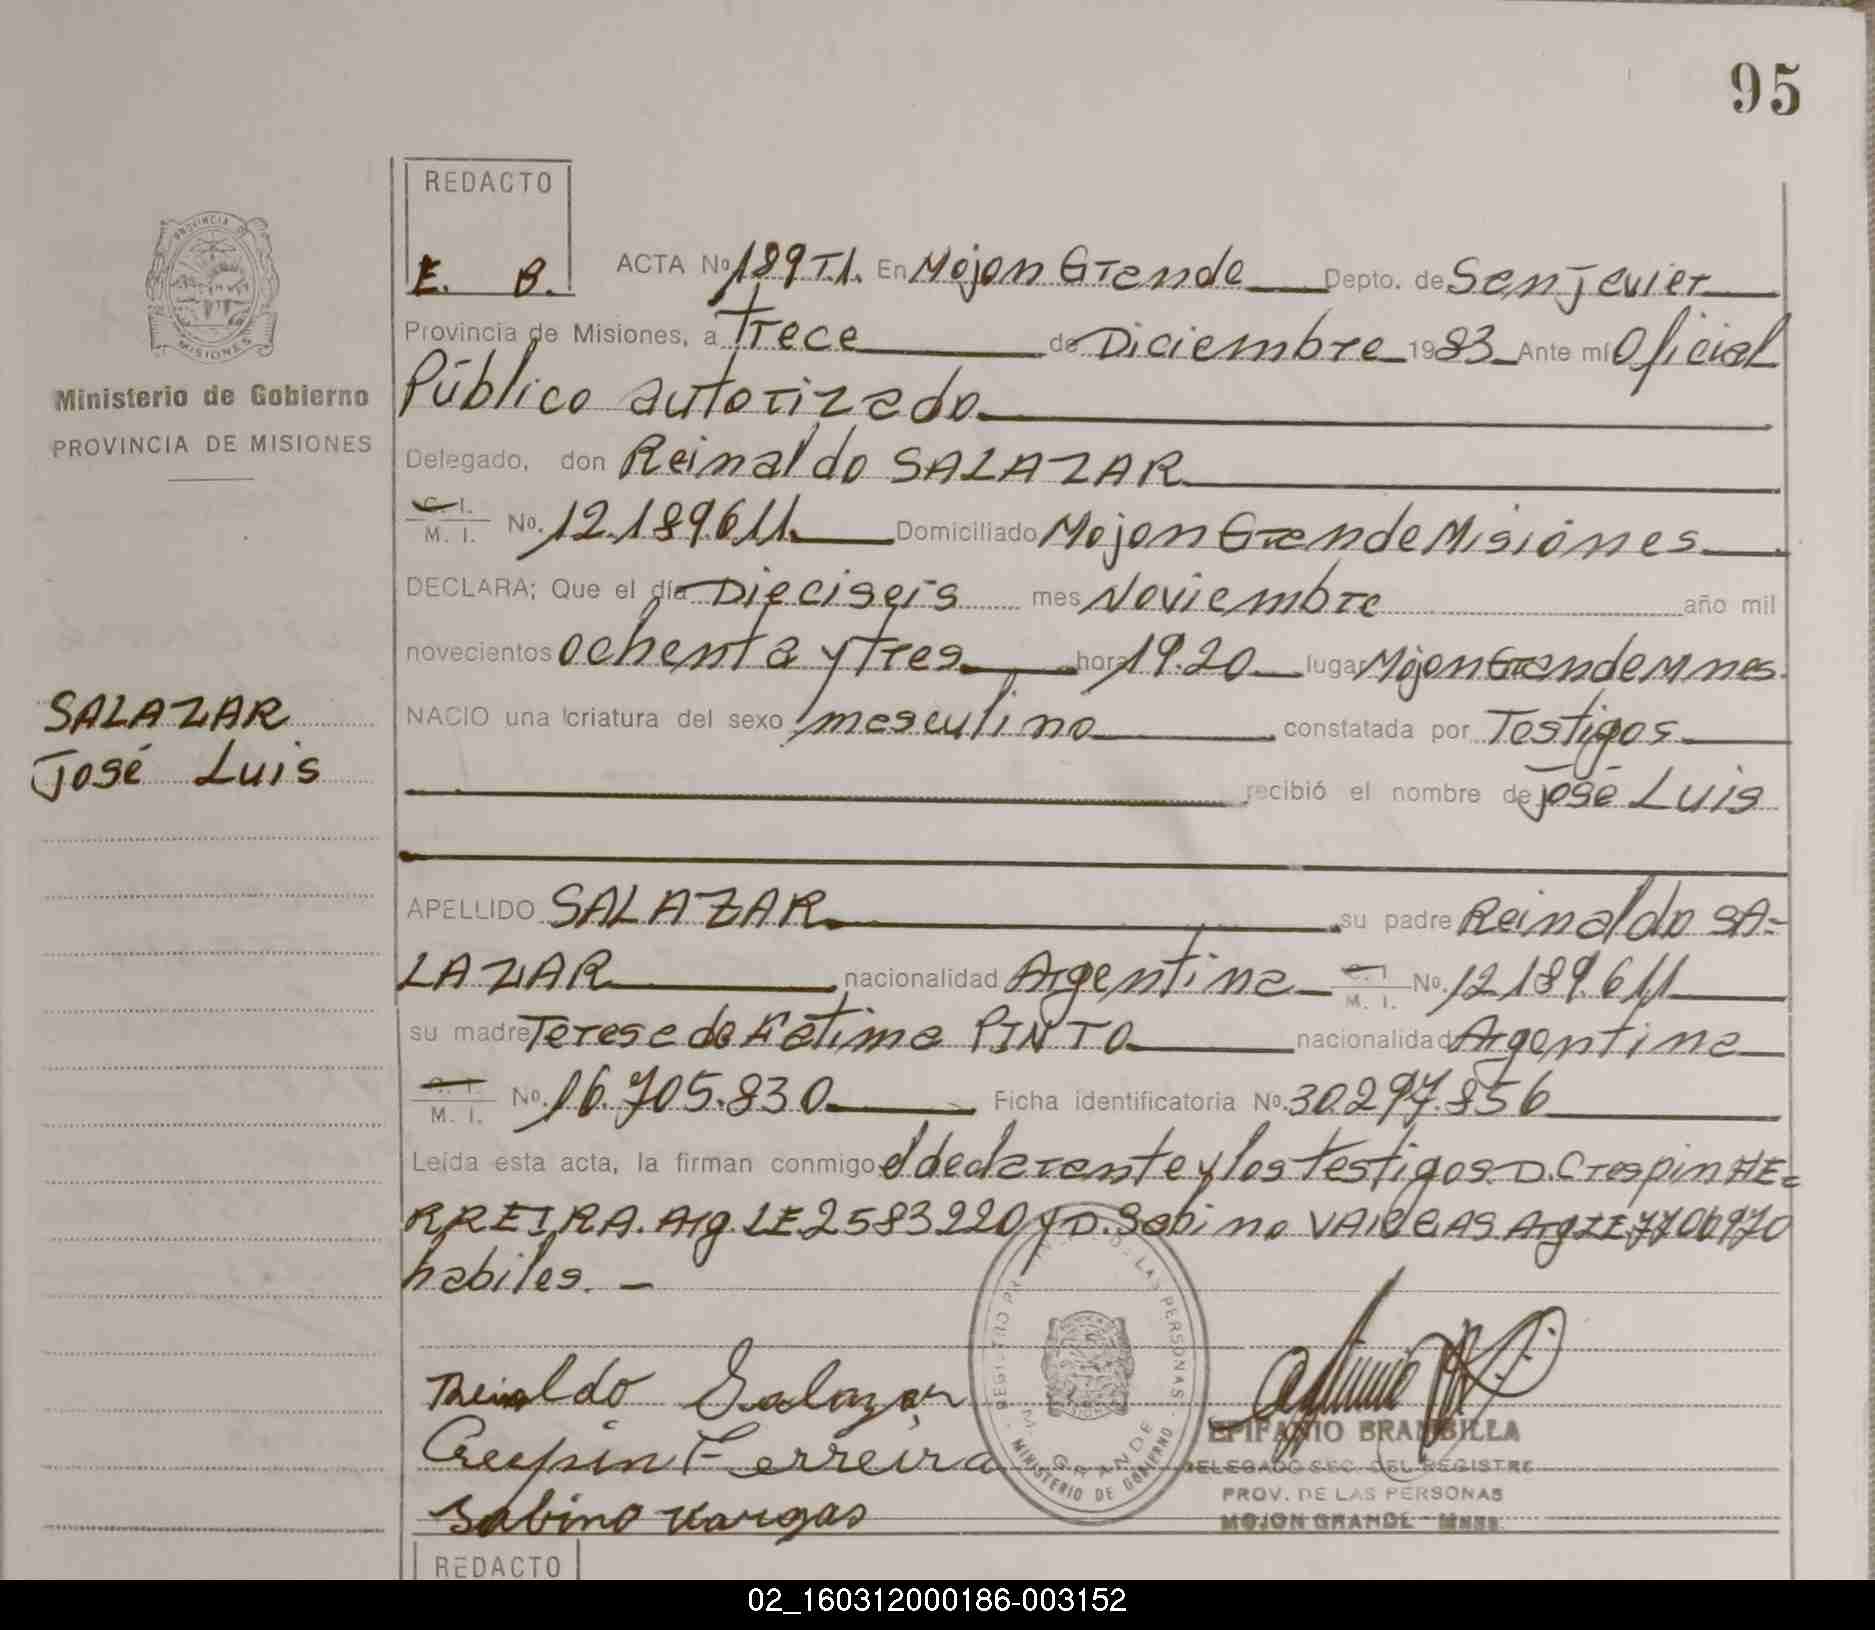 95
REDACTO
E. B.
PROVINCIA DE
MISIONES
Ministerio de Gobierno
PROVINCIA DE MISIONES
SALAZAR
José Luis
ACTA Nº 189 T.I. En Mojon Grande Depto. de San Javier
Provincia de Misiones, a Trece de Diciembre 1983 Ante mí Oficial
Público autorizado
Delegado, don Reinaldo SALAZAR
C. I. / M. I. No. 12.189.611 Domiciliado Mojon Grande Misiones
DECLARA; Que el día Dieciseis mes Noviembre año mil
novecientos ochenta y tres hora 19.20 lugar Mojon Grande Mnes.
NACIO una criatura del sexo masculino constatada por Testigos
recibió el nombre de José Luis
APELLIDO SALAZAR su padre Reinaldo SA-
LAZAR nacionalidad Argentina C. I. / M. I. No. 12.189.611
su madre Teresa de Fatima PINTO nacionalidad Argentina
C. I. / M. I. No. 16.705.830 Ficha identificatoria No. 30.297.856
Leída esta acta, la firman conmigo el declarante y los testigos D. Crespin FE-
RREIRA. Arg. LE. 2583220 y D. Sabino VARGAS Arg LE 7706970
habiles. -
Reinaldo Salazar
Crespin Ferreira
Sabino Vargas
REGISTRO PROVINCIAL DE LAS PERSONAS
M. GRANDE
MINISTERIO DE GOBIERNO
EPIFANIO BRAMBILLA
DELEGADO SEC. DEL REGISTRO
PROV. DE LAS PERSONAS
MOJON GRANDE - Mnes.
REDACTO
02_160312000186-003152